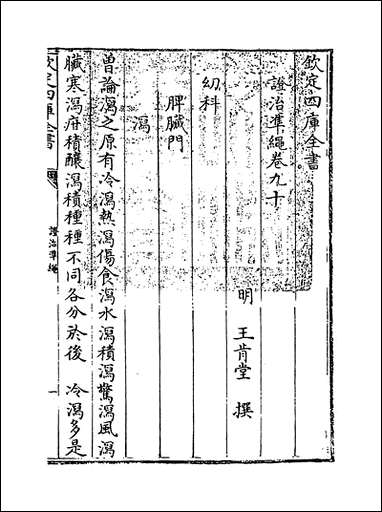 欽定四庫全書
證治準繩卷九十
明 王肯堂 撰
幼科
脾臟門
瀉
曾論瀉之原有冷瀉熱瀉傷食瀉水瀉積瀉驚瀉風瀉
臟寒瀉疳積釀瀉積種種不同各分於後 冷瀉多是
欽定四庫全書
證治準繩
一